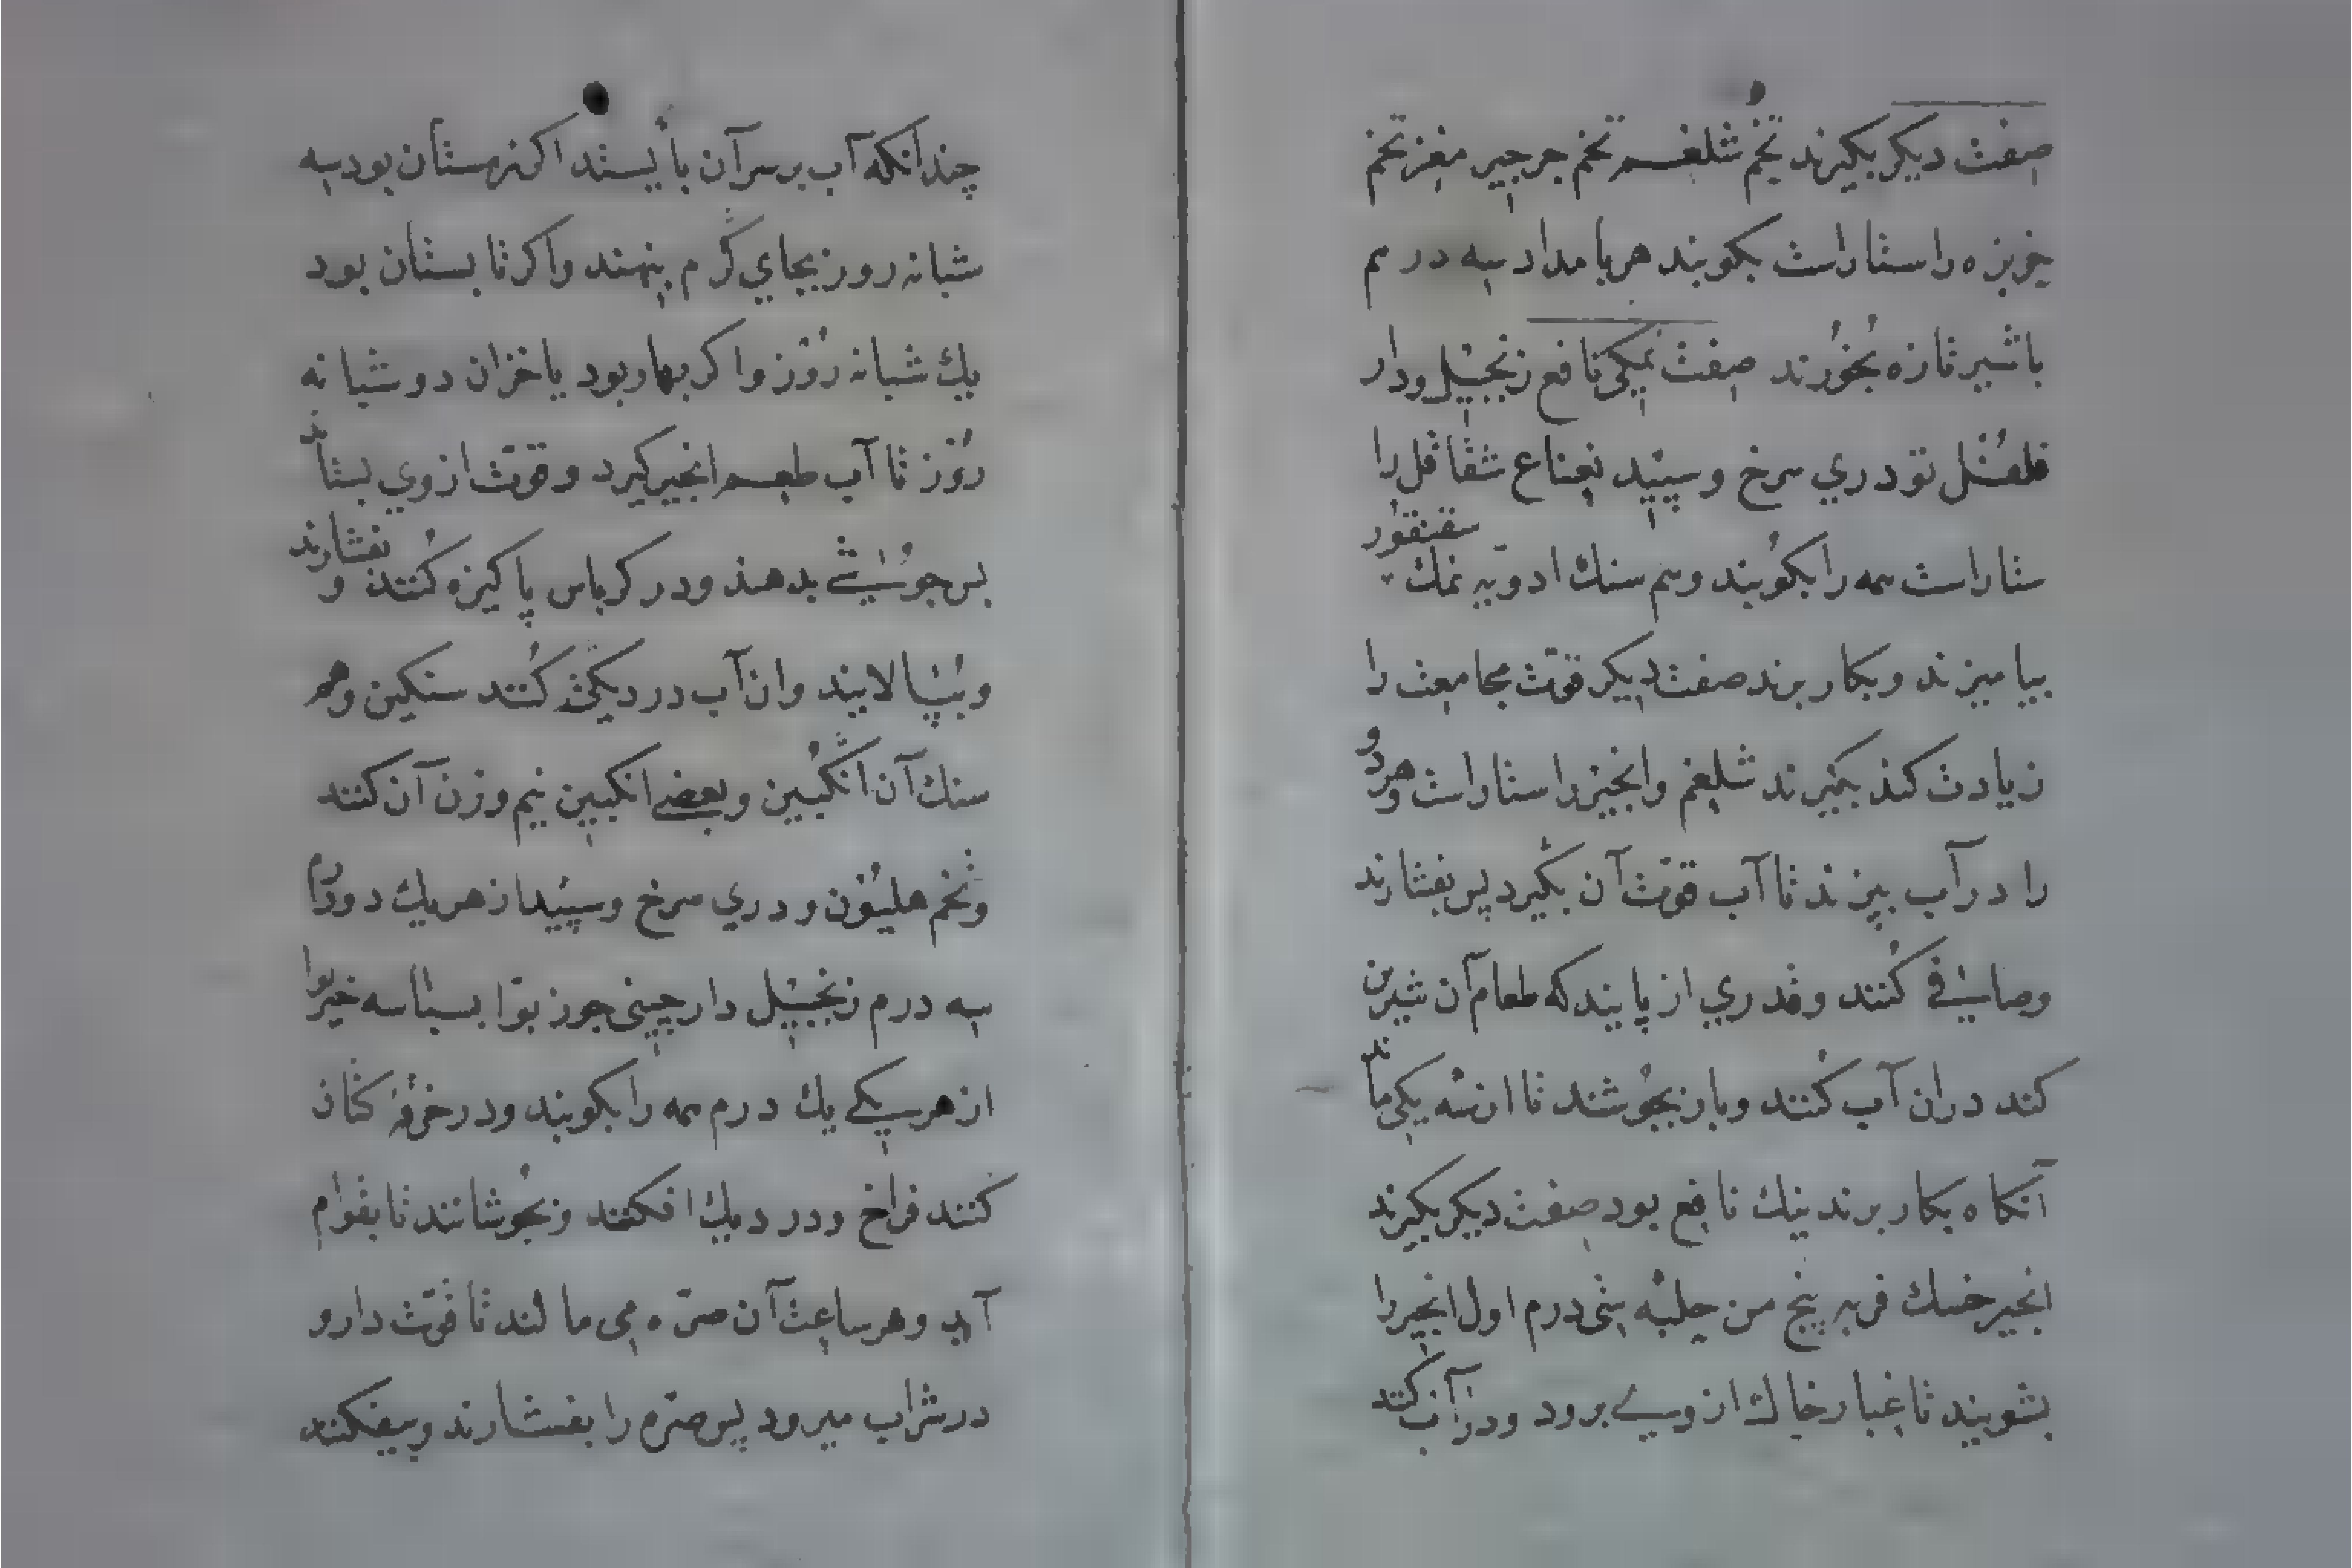 صفت دیکر بکیرند تخم شلغم تخم جرجیر مغز تخم
خربزه راستاراست بکوبند هر بامداد سه درم
با شیر تازه بخورند صفت نمکی نافع زنجبیل ودار
فلفل تودری سرخ وسپید نعناع شقاقل را
ستاراست همه را بکوبند وهم سنك ادویه نمك سقنقور
بیامیزند وبکار برند صفت دیکر قوت مجامعت را
زیادت کند بکیرند شلغم وانجیر راستاراست وهر دو
را در آب بپزند تا آب قوت آن بکیرد پس بفشارند
وصافی کنند وقدری از پانیذ که طعام آن شیرین
کند دران آب کنند وباز بجوشند تا از سه یکی ماند
آنکاه بکار برند نیك نافع بود صفت دیکر بکیرند
انجیر خشك فربه پنج من حلبه سی درم اول انجیر را
بشویند تا غبار خاك از وی برود ودر آب کنند
چندانکه آب بر سر آن بایستد اکر زمستان بود سه
شبانه روز بجای کرم بنهند واکر تابستان بود
یك شبانه روز واکر بهار بود یا خزان دو شبانه
روز تا آب طعم انجیر کیرد وقوت از وی بستاند
پس جوشی بدهند ودر کرباس پاکیزه کنند و بفشارند
وبپالایند وان آب در دیکی کنند سنکین وهم
سنك آن انکبین وبعضی انکبین نیم وزن آن کنند
وتخم هلیون ودری سرخ وسپید از هر یك دو درم
سه درم زنجبیل دارچینی جوز بوا بسباسه خیربوا
از هر یکی یك درم همه را بکوبند ودر خرقه کتان
کنند فراخ ودر دیك افکنند وبجوشانند تا بقوام
آید وهر ساعت آن صره می مالند تا قوت دارو
در شراب میرود پس صره را بفشارند وبیفکنند